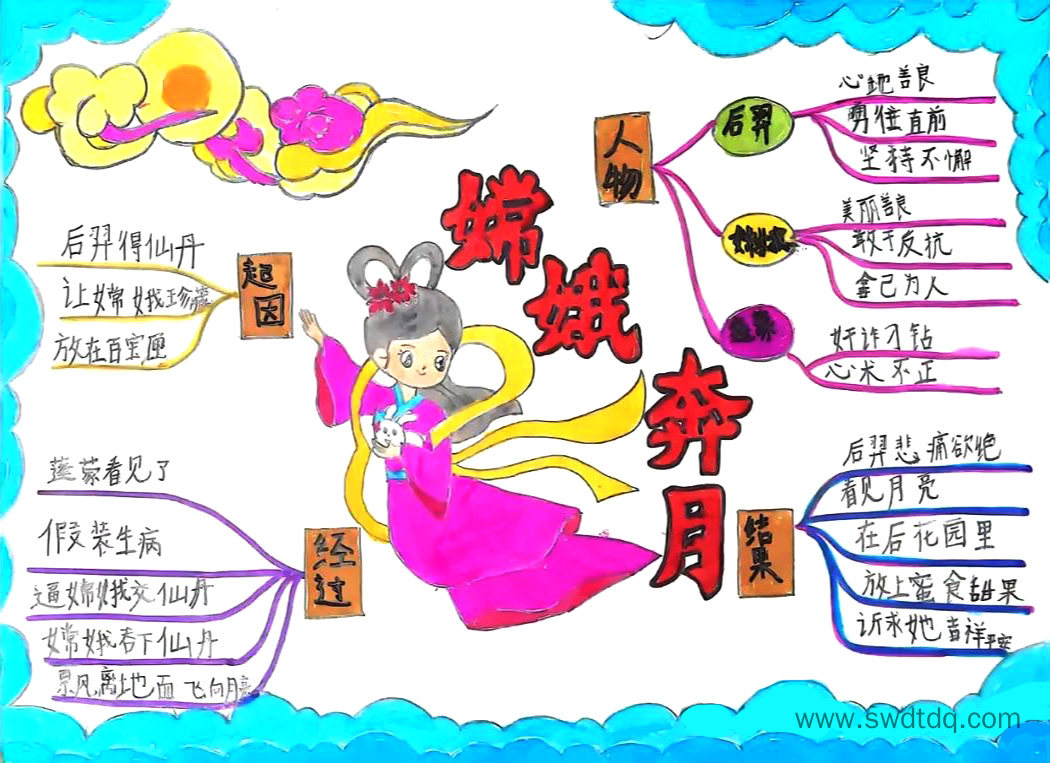 嫦娥奔月
人物
后羿
心地善良
勇往直前
坚持不懈
嫦娥
美丽善良
敢于反抗
舍己为人
奸诈刁钻
心术不正
起因
后羿得仙丹
让嫦娥珍藏
放在百宝匣
经过
蓬蒙看见了
假装生病
逼嫦娥交仙丹
嫦娥吞下仙丹
风离地面 飞向月亮
结果
后羿悲痛欲绝
看见月亮
在后花园里
放上蜜食甜果
诉求她吉祥平安
www.swdtdq.com